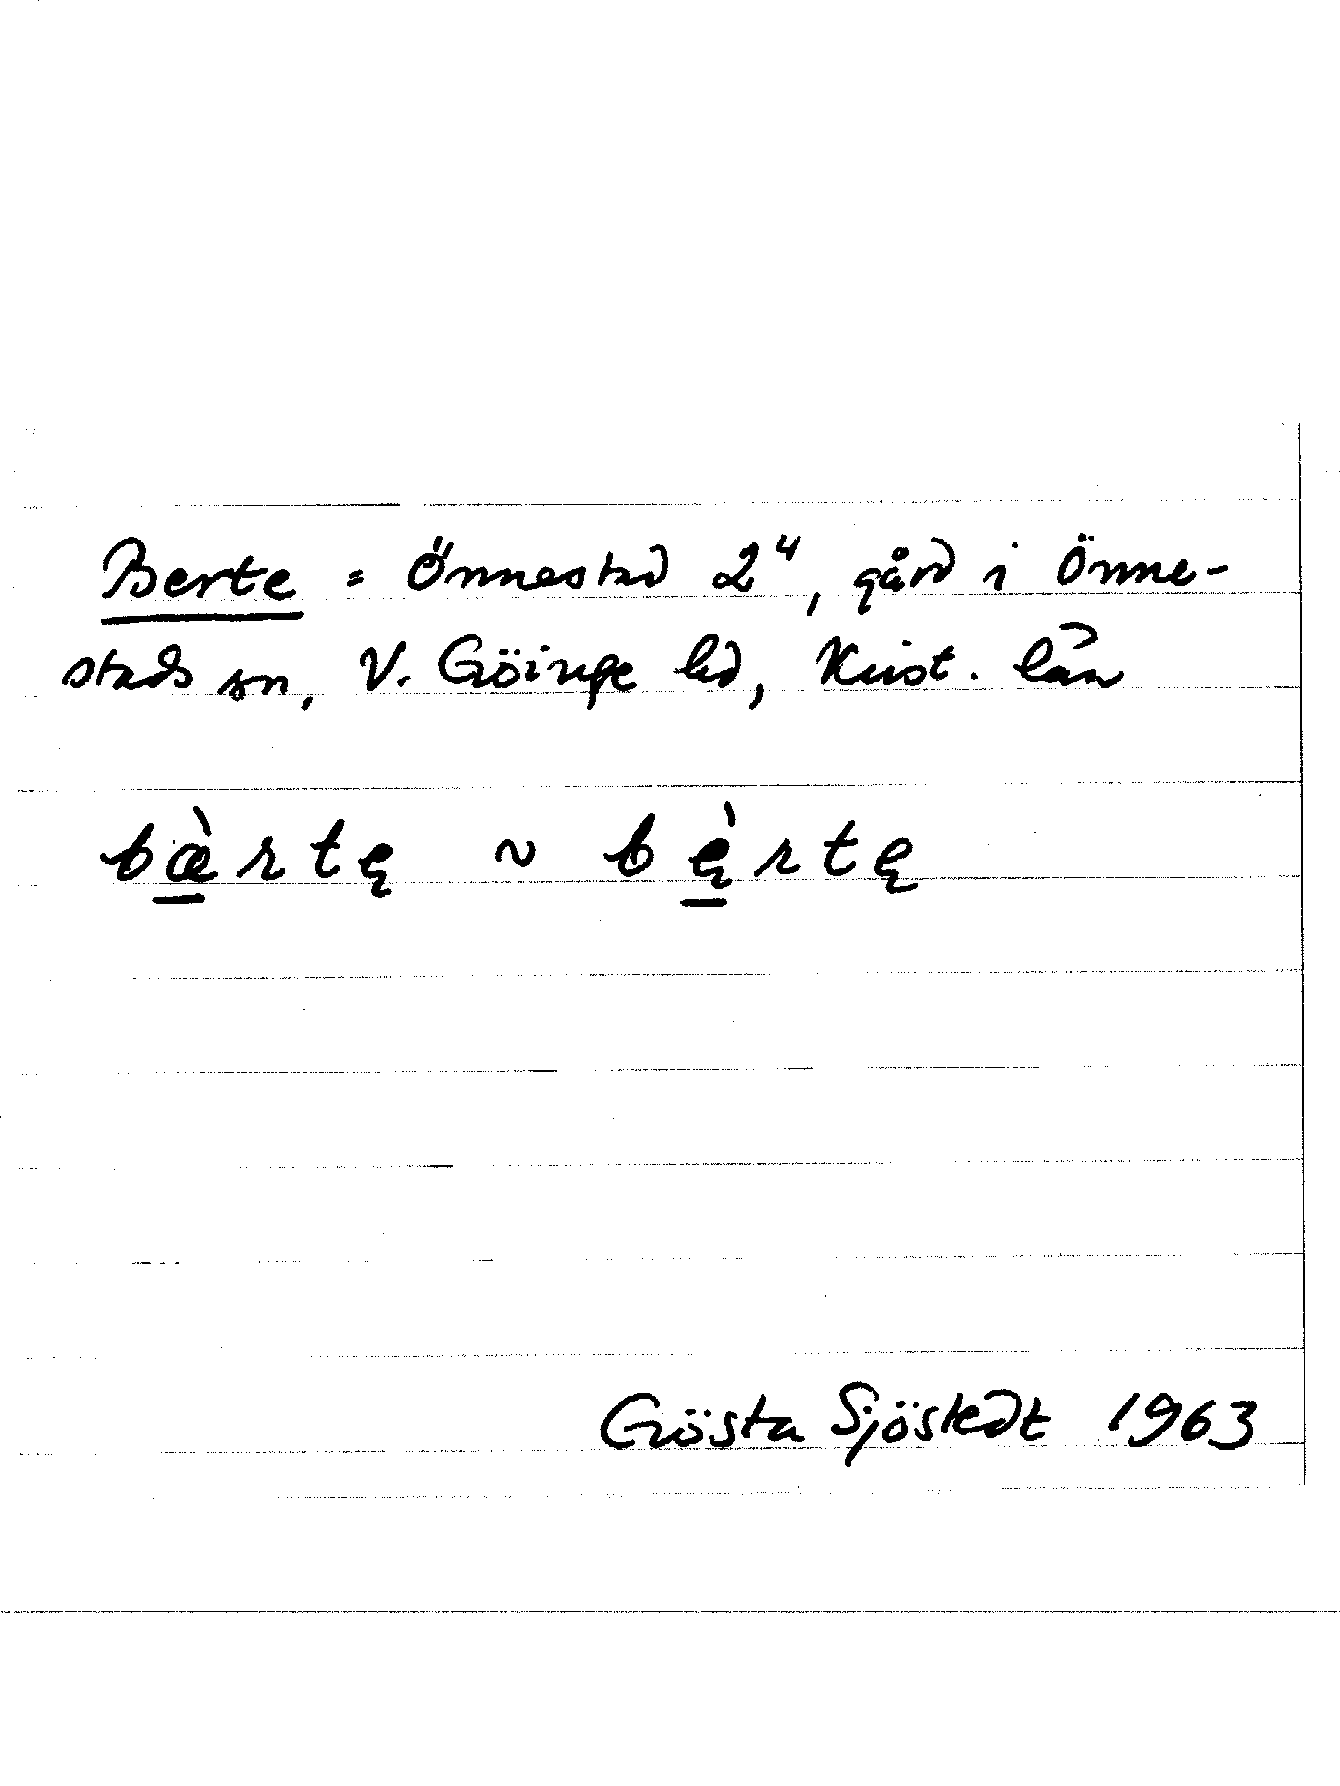 Berte = Önnestad 2⁴, gård i Önne-
stads sn, V. Göinge hd, Krist. län
bæ̱̀rtę ~ bę̱̀rtę
Gösta Sjöstedt 1963